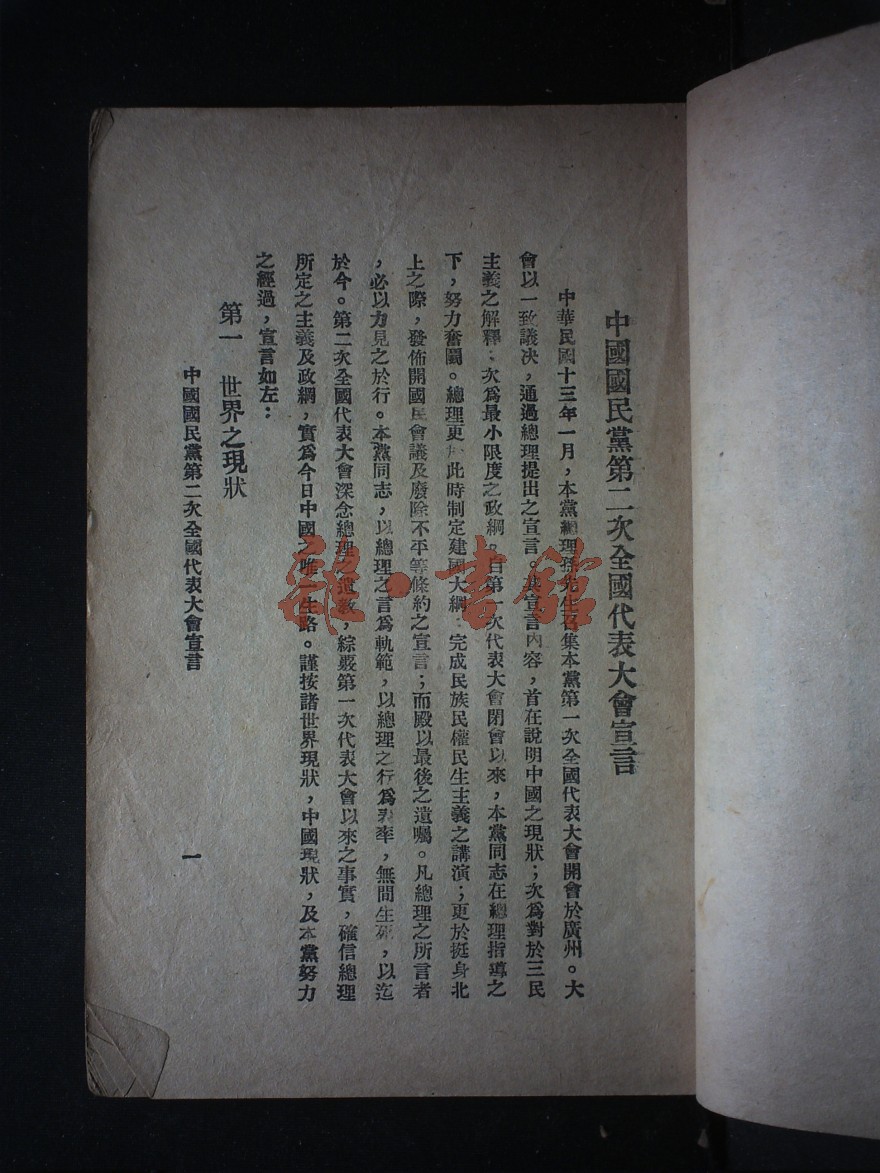 中國國民黨第二次全國代表大會宣言
中華民國十三年一月，本黨總理孫先生召集本黨第一次全國代表大會開會於廣州。大
會以一致議決，通過總理提出之宣言。其宣言內容，首在說明中國之現狀；次爲對於三民
主義之解釋；次爲最小限度之政綱。自第一次代表大會閉會以來，本黨同志在總理指導之
下，努力奮鬭。總理更於此時制定建國大綱，完成民族民權民生主義之講演；更於挺身北
上之際，發佈開國民會議及廢除不平等條約之宣言；而殿以最後之遺囑。凡總理之所言者
，必以力見之於行。本黨同志，以總理之言爲軌範，以總理之行爲表率，無間生死，以迄
於今。第二次全國代表大會深念總理之遺敎，綜覈第一次代表大會以來之事實，確信總理
所定之主義及政綱，實爲今日中國之唯一生路。謹按諸世界現狀，中國現狀，及本黨努力
之經過，宣言如左：
第一　世界之現狀
中國國民黨第二次全國代表大會宣言
一
書館